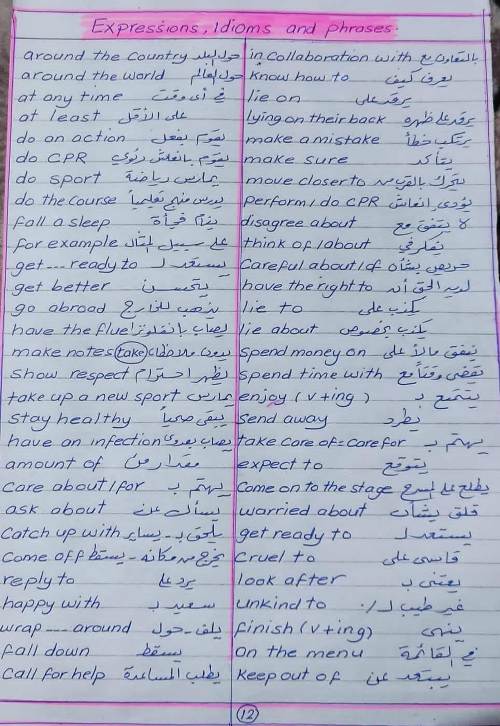 Expressions, Idioms and phrases.
around the Country حول البلد
around the world حول العالم
at any time في أى وقت
at least على الأقل
do an action يقوم بفعل
do CPR يقوم بانعاش رئوي
do sport يمارس رياضة
do the course يدرس منهج تعليمياً
fall a sleep ينام فجأة
for example على سبيل المثال
get --- ready to يستعد لـ
get better يتحسن
go abroad يذهب للخارج
have the flue يصاب بإنفلونزا
make notes (take) يدون ملاحظات
show respect يظهر احترام
take up a new sport يمارس
stay healthy يبقى صحياً
have an infection يصاب بعدوى
amount of مقدار من
care about / for يهتم بـ
ask about يسأل عن
catch up with يلحق بـ - يساير
come off يخرج من مكانه - يسقط
reply to يرد على
happy with سعيد بـ
wrap --- around يلف - حول
fall down يسقط
call for help يطلب المساعدة
in Collaboration with بالتعاون مع
know how to يعرف كيف
lie on يرقد على
lying on their back يرقد على ظهره
make a mistake يرتكب خطأ
make sure يتأكد
move closer to يتحرك بالقرب من
perform / do CPR يؤدى انعاش
disagree about لا يتفق مع
think of / about يفكر في
Careful about / of حريص بشأن
have the right to لديه الحق أن
lie to يكذب على
lie about يكذب بخصوص
spend money on ينفق مالاً على
spend time with يقضى وقتاً مع
enjoy (v+ing) يتمتع بـ
send away يطرد
take care of = care for يهتم بـ
expect to يتوقع
Come on to the stage يطلع على المسرح
warried about قلق بشأن
get ready to يستعد لـ
cruel to قاسى على
look after يعتنى بـ
unkind to غير طيب لـ
finish (v+ing) ينهى
on the menu في القائمة
keep out of يبتعد عن
12